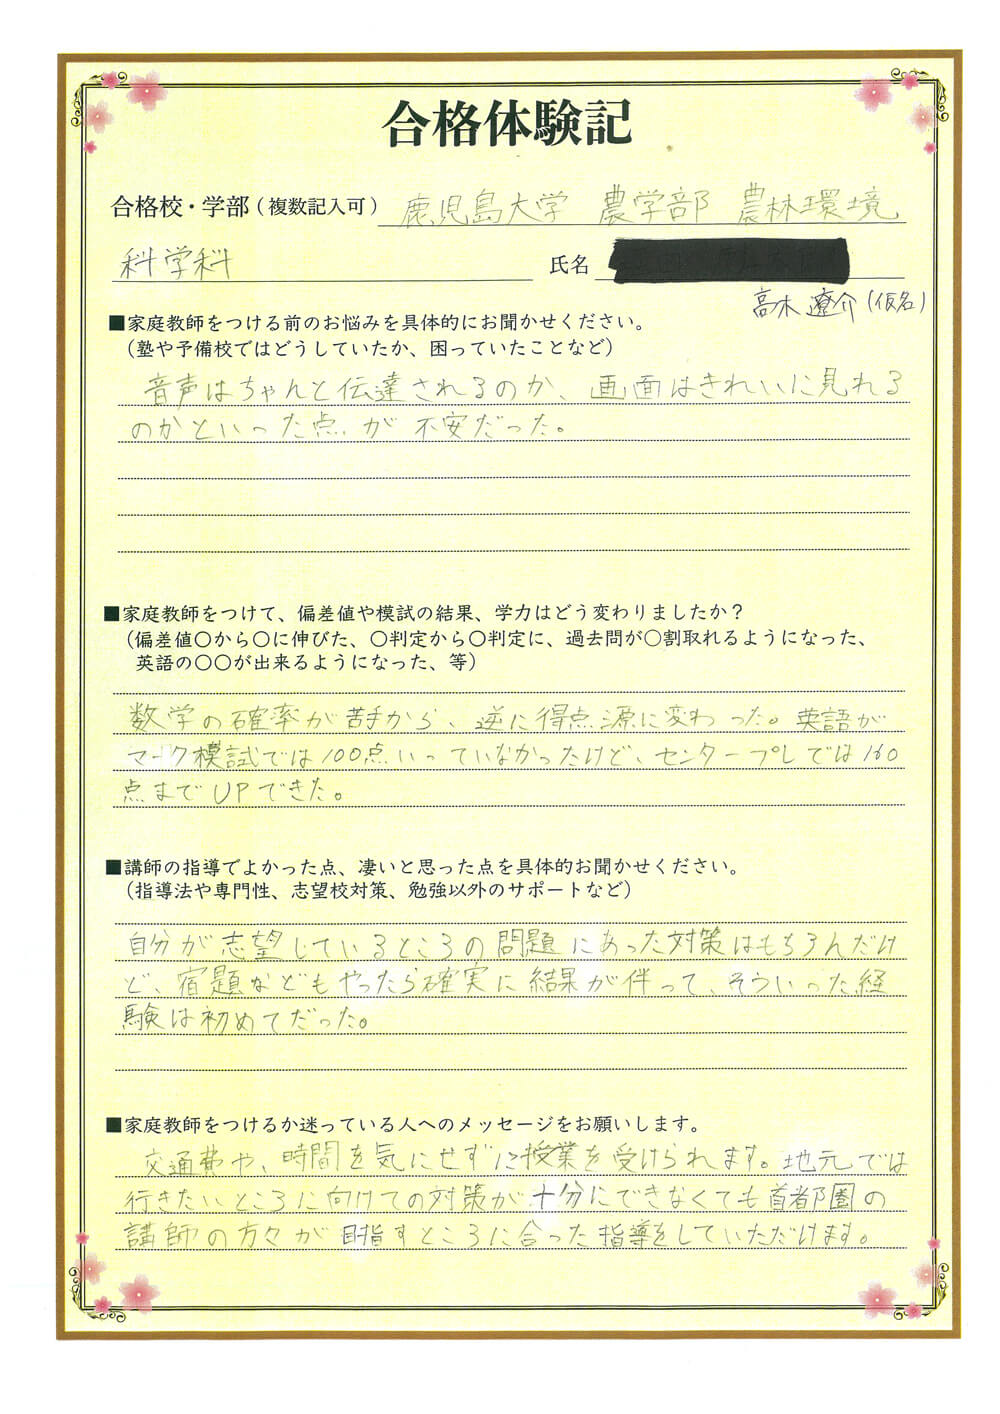 合格体験記
合格校・学部(複数記入可) 鹿児島大学 農学部 農林環境
科学科 氏名
高木 遼介(仮名)
■家庭教師をつける前のお悩みを具体的にお聞かせください。
(塾や予備校ではどうしていたか、困っていたことなど)
音声はちゃんと伝達されるのか、画面はきれいに見れる
のかといった点が不安だった。
■家庭教師をつけて、偏差値や模試の結果、学力はどう変わりましたか？
(偏差値〇から〇に伸びた、〇判定から〇判定に、過去問が〇割取れるようになった、
英語の〇〇が出来るようになった、等)
数学の確率が苦手から、逆に得点源に変わった。英語が
マーク模試では100点いっていなかったけど、センタープレでは160
点までUPできた。
■講師の指導でよかった点、凄いと思った点を具体的お聞かせください。
(指導法や専門性、志望校対策、勉強以外のサポートなど)
自分が志望しているところの問題にあった対策はもちろんだけ
ど、宿題などもやったら確実に結果が伴って、そういった経
験は初めてだった。
■家庭教師をつけるか迷っている人へのメッセージをお願いします。
交通費や、時間を気にせずに授業を受けられます。地元では
行きたいところに向けての対策が十分にできなくても首都圏の
講師の方々が目指すところに合った指導をしていただけます。